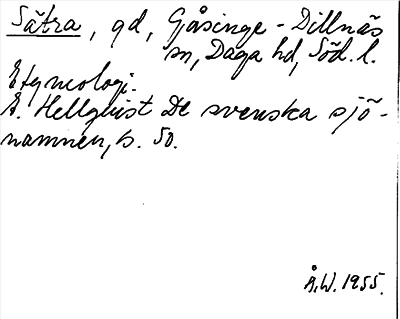 Sätra, gd, Gåsinge-Dillnäs
sn, Daga hd, Söd. l.
Etymologi.
E. Hellquist De svenska sjö-
namnen, s. 50.
Å.W. 1955.